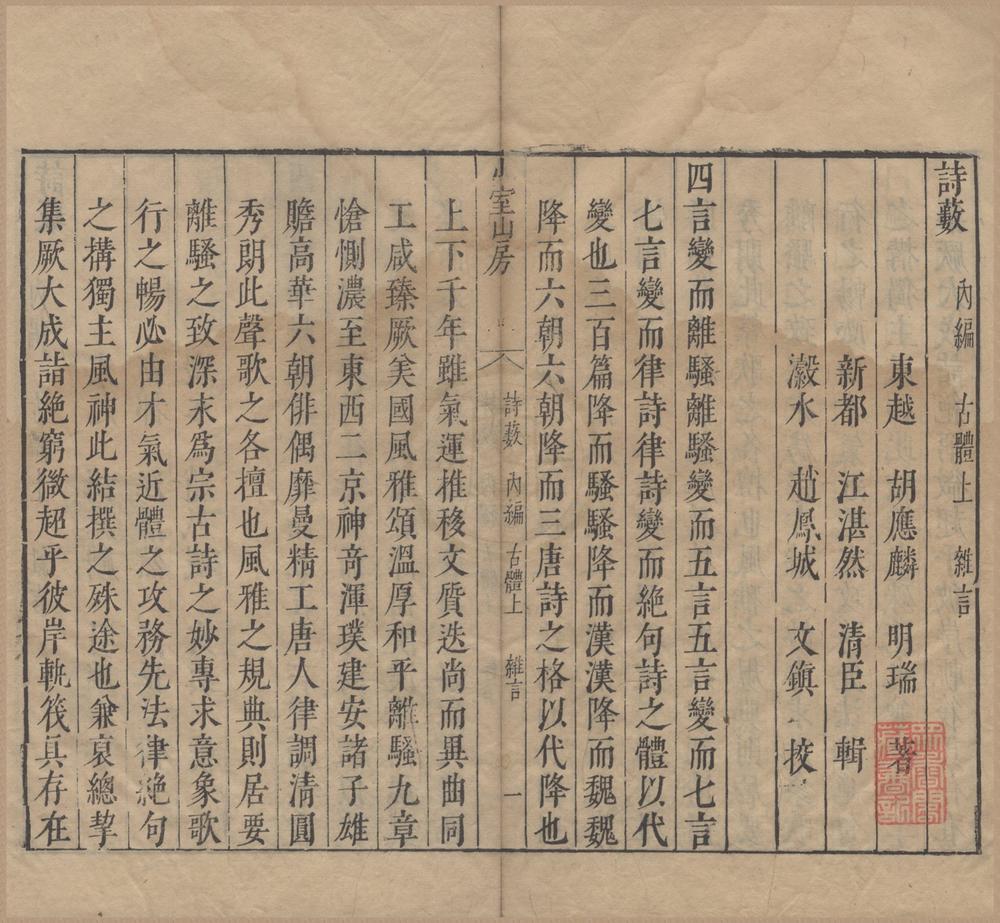 詩藪 內編 古體上 雜言
東越 胡應麟 明瑞 著
新都 江湛然 清臣 輯
瀫水 趙鳳城 文鎭 挍
四言變而離騷離騷變而五言五言變而七言
七言變而律詩律詩變而絶句詩之體以代
變也三百篇降而騷騷降而漢漢降而魏魏
降而六朝六朝降而三唐詩之格以代降也
少室山房 詩藪 內編 古體上 雜言 一
上下千年雖氣運推移文質迭尚而異曲同
工咸臻厥美國風雅頌溫厚和平離騷九章
愴惻濃至東西二京神奇渾璞建安諸子雄
贍高華六朝俳偶靡曼精工唐人律調清圓
秀朗此聲歌之各擅也風雅之規典則居要
離騷之致深永爲宗古詩之妙專求意象歌
行之暢必由才氣近體之攻務先法律絶句
之搆獨主風神此結撰之殊途也兼裒總挈
集厥大成詣絶窮微超乎彼岸軌筏具存在